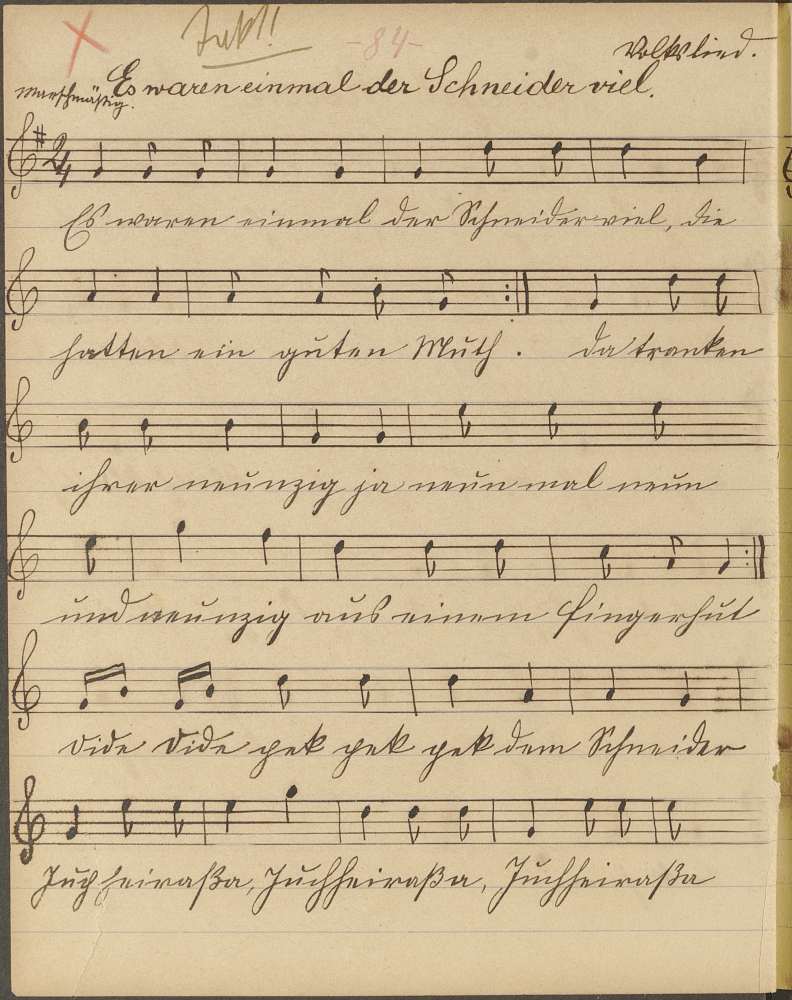 Text!!
-84-
Volkslied.
Es waren einmal der Schneider viel.
Marschmäßig.
2/4
Es waren einmal der Schneider viel, die
hatten ein guten Muth. da tranken
ihrer neunzig ja neun mal neun
und neunzig aus einem Fingerhut
dide dide gek gek gek dem Schneider
Juchheiraßa, Juchheiraßa, Juchheiraßa